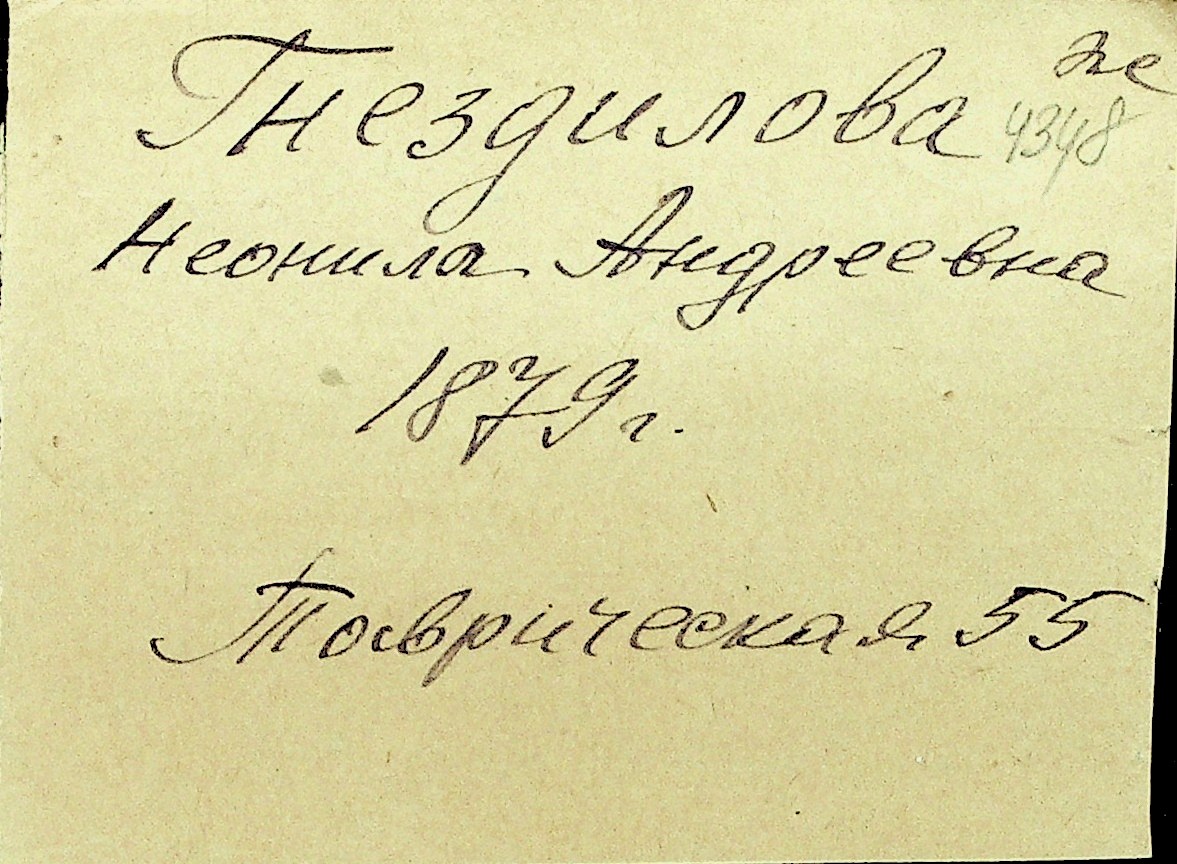 же
Гнездилова 4348
Неонила Андреевна
1879 г.
Таврическая 55